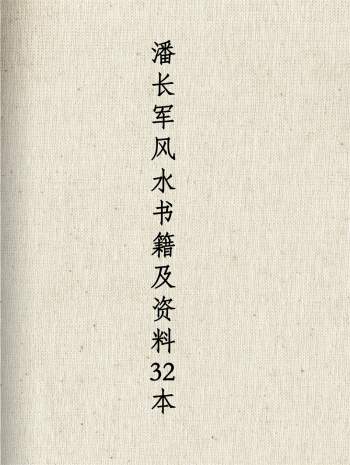 潘长军风水书籍及资料32本